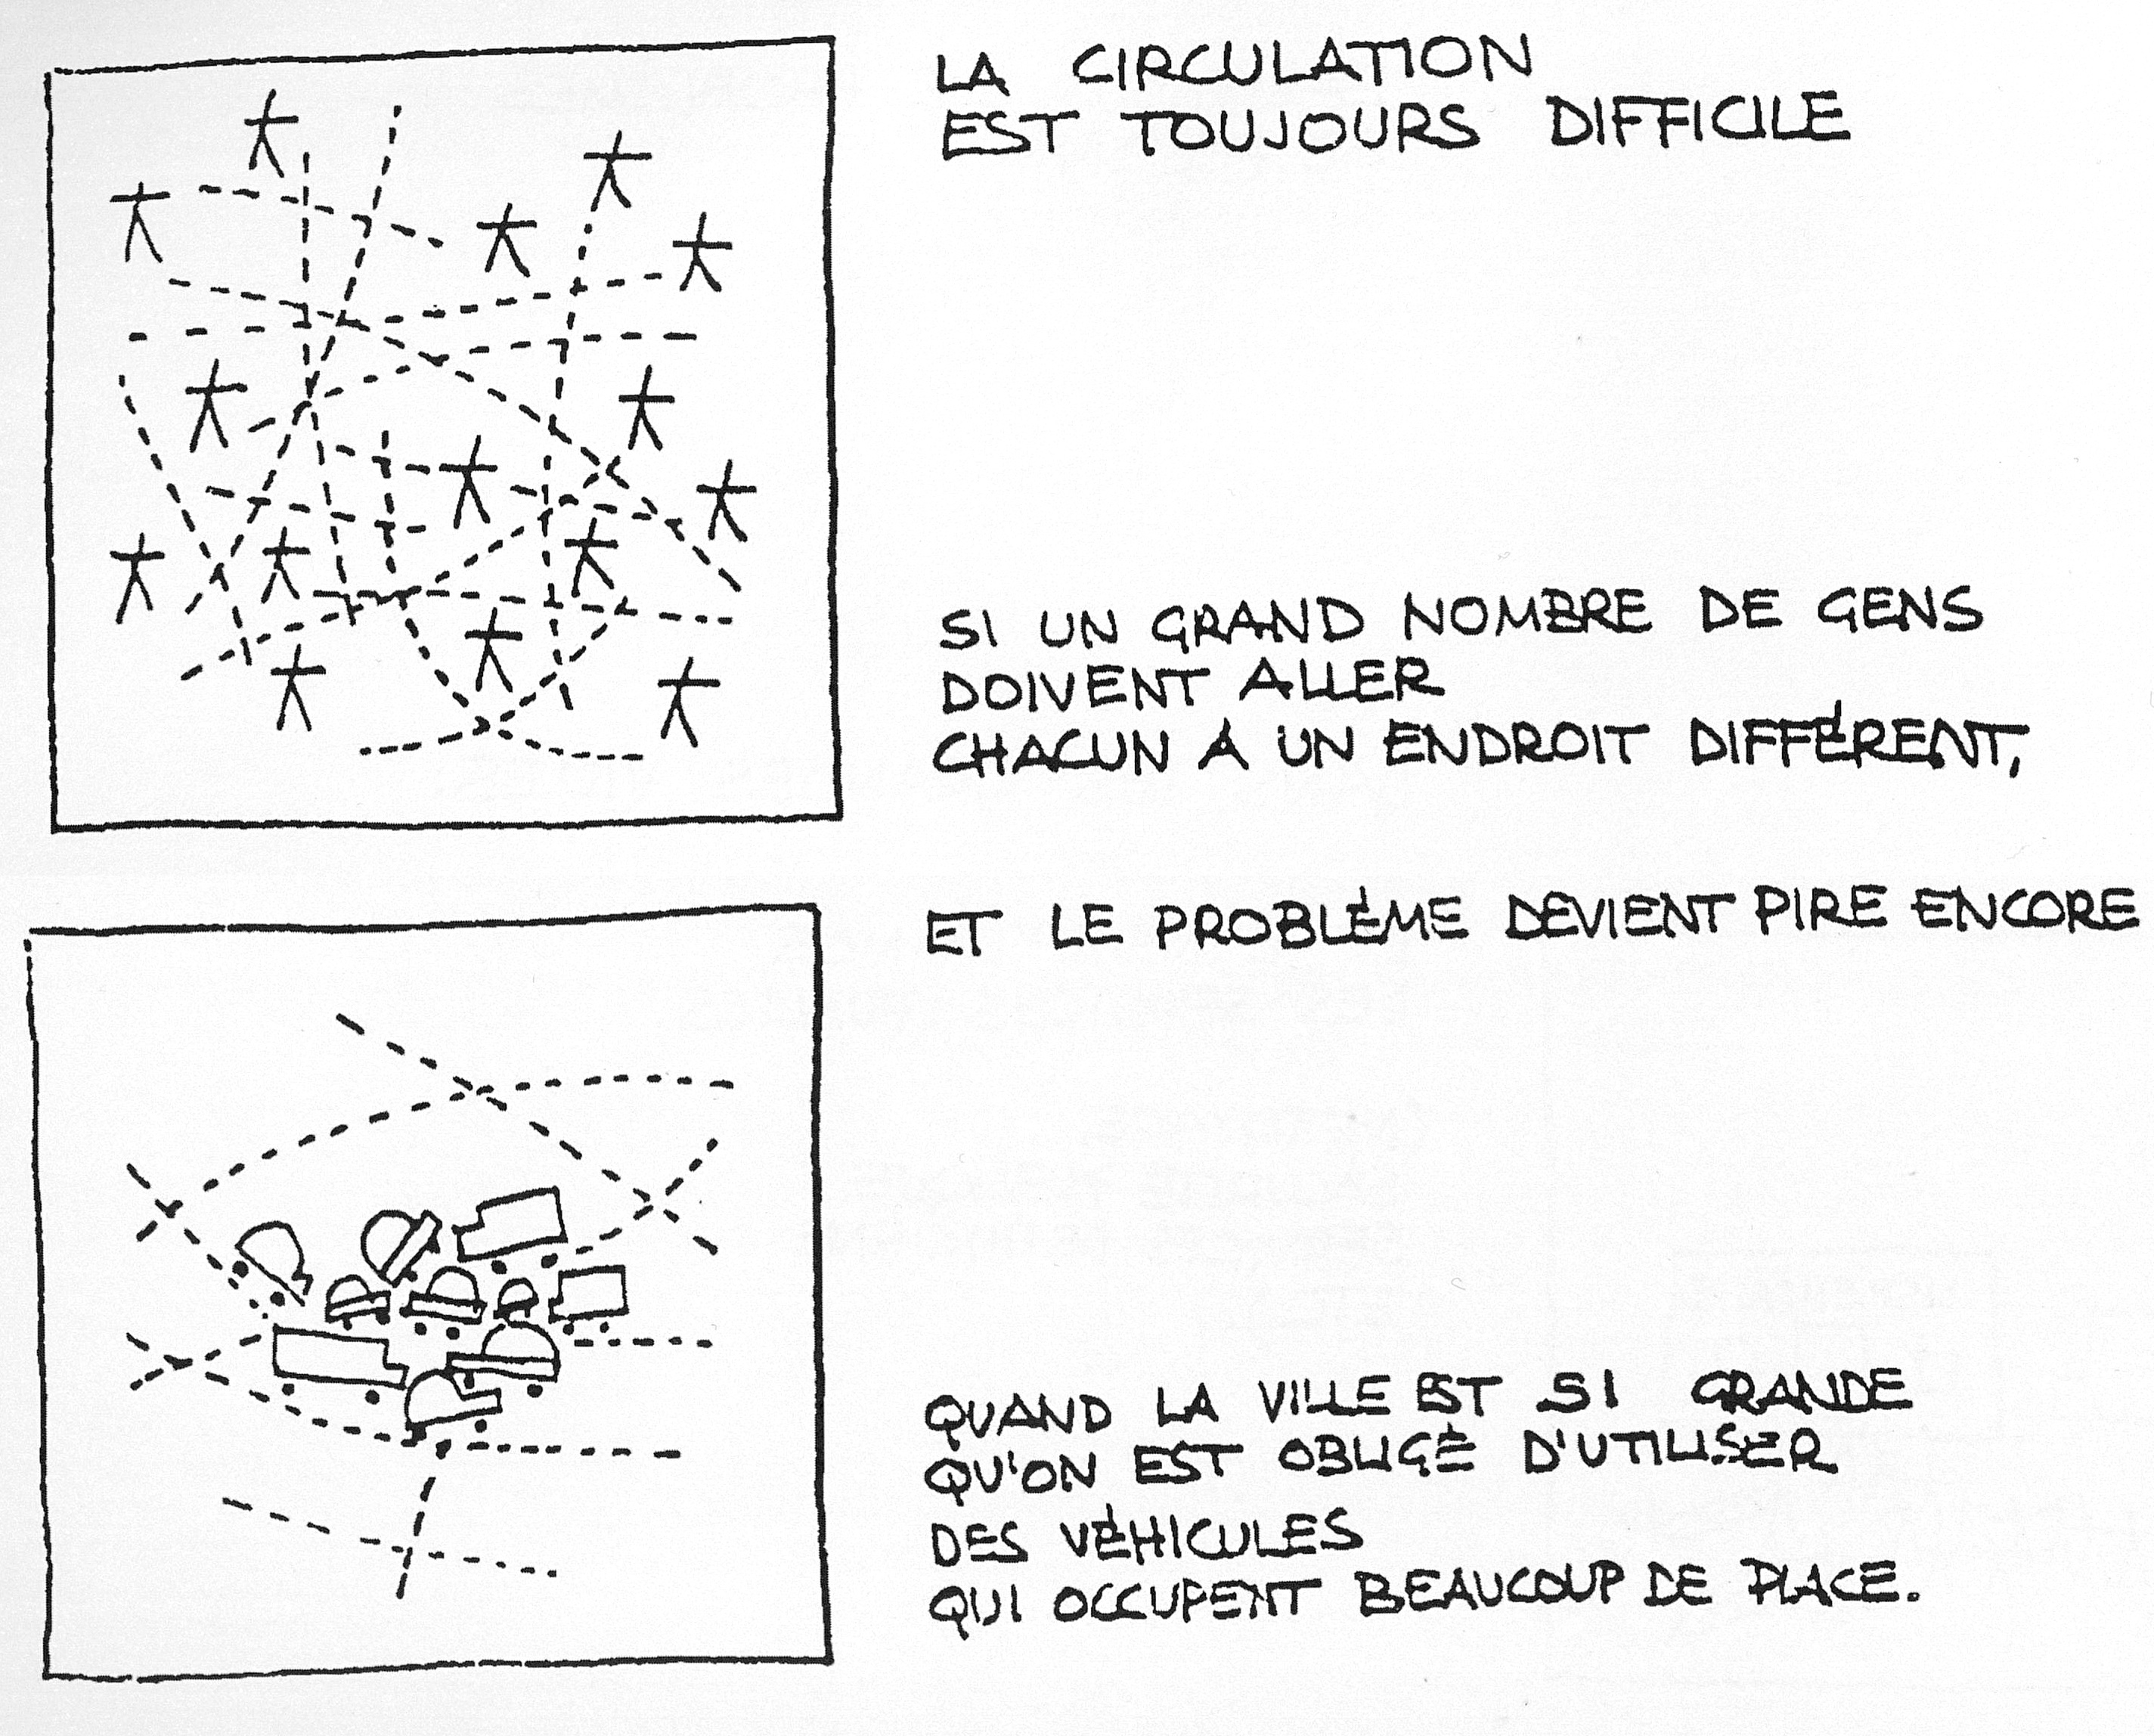 LA CIRCULATION
EST TOUJOURS DIFFICILE
SI UN GRAND NOMBRE DE GENS
DOIVENT ALLER
CHACUN À UN ENDROIT DIFFÉRENT,
ET LE PROBLÈME DEVIENT PIRE ENCORE
QUAND LA VILLE EST SI GRANDE
QU'ON EST OBLIGÉ D'UTILISER
DES VÉHICULES
QUI OCCUPENT BEAUCOUP DE PLACE.